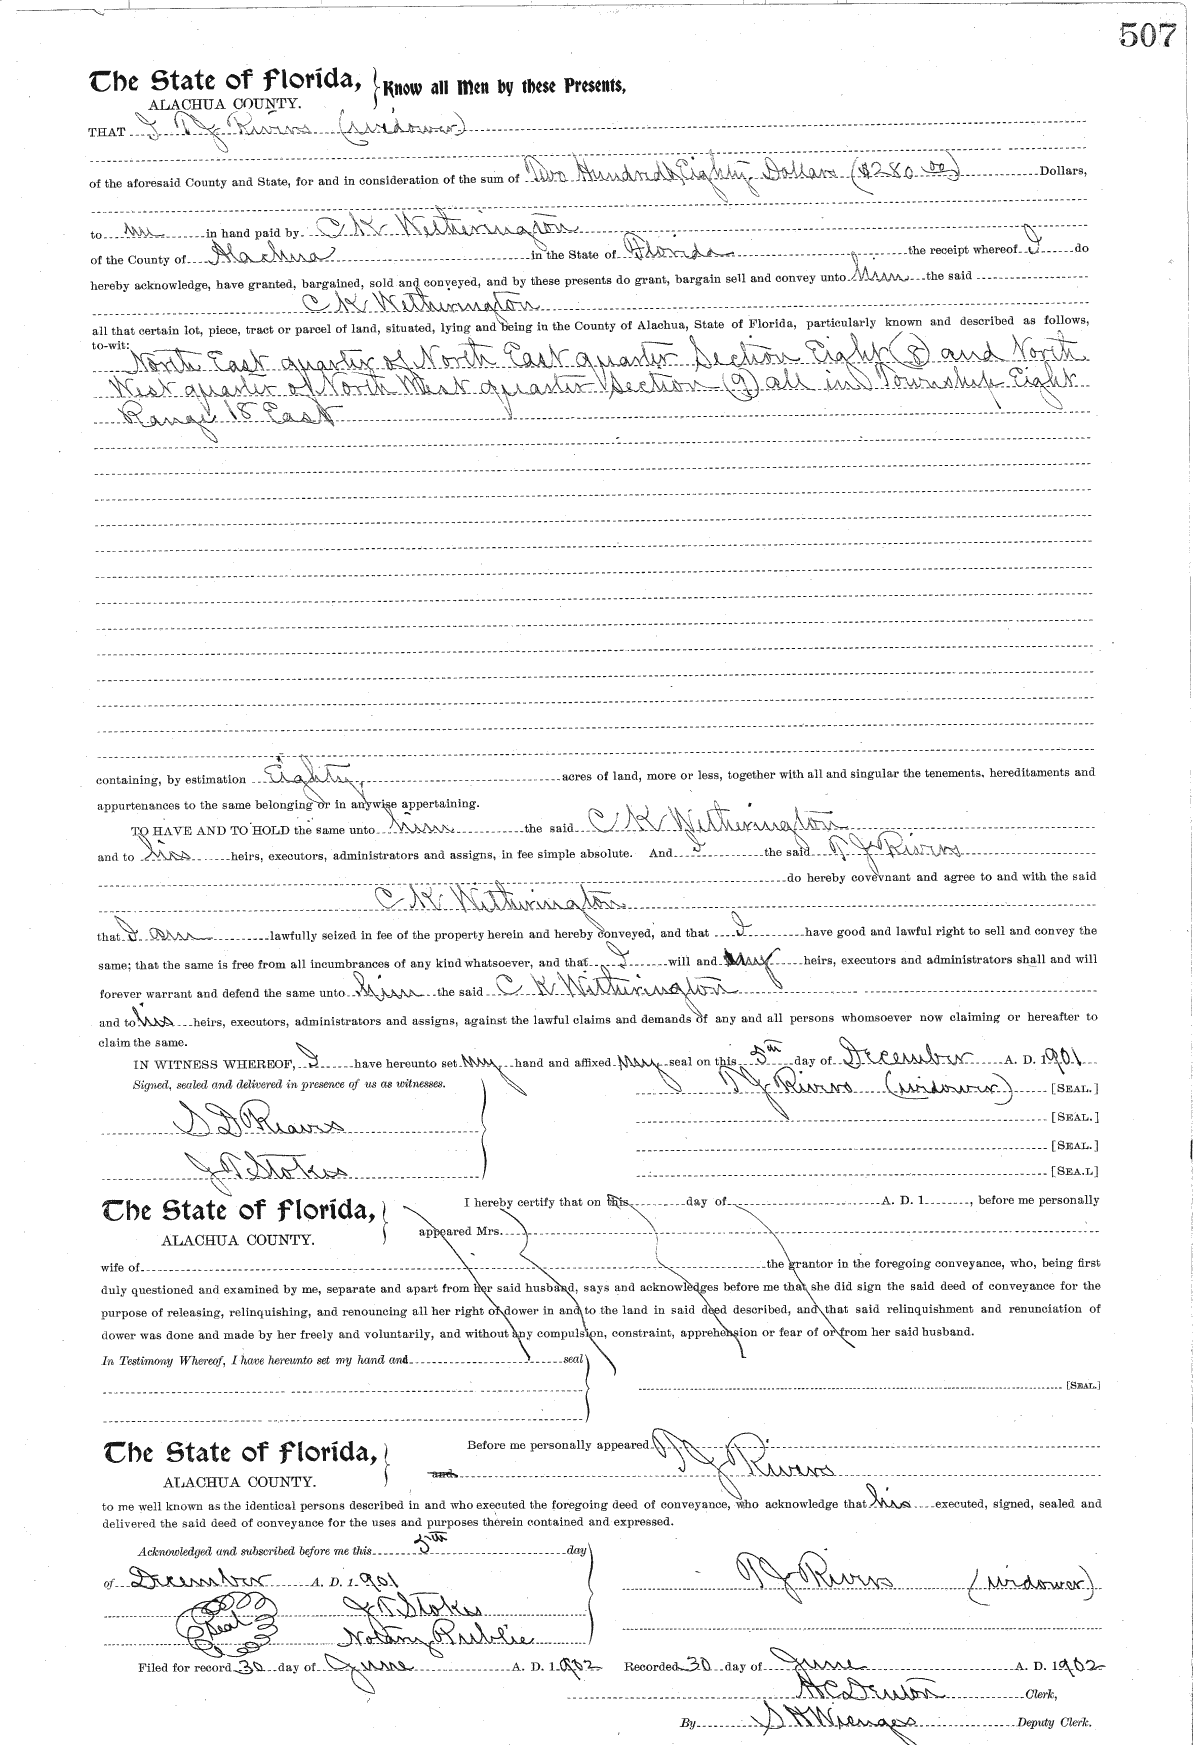 507
The State of Florida, Know all Men by these Presents,
ALACHUA COUNTY.
THAT I T J Rivers (widower)
of the aforesaid County and State, for and in consideration of the sum of Two Hundred & Eighty Dollars ($280.00) Dollars,
to me in hand paid by C K Wetherington
of the County of Alachua in the State of Florida the receipt whereof I do
hereby acknowledge, have granted, bargained, sold and conveyed, and by these presents do grant, bargain sell and convey unto Him the said
C K Wetherington
all that certain lot, piece, tract or parcel of land, situated, lying and being in the County of Alachua, State of Florida, particularly known and described as follows,
to-wit:
North East quarter of North East quarter Section Eight (8) and North
West quarter of North West quarter Section (9) all in Township Eight
Range 18 East
containing, by estimation Eighty, acres of land, more or less, together with all and singular the tenements, hereditaments and
appurtenances to the same belonging or in anywise appertaining.
TO HAVE AND TO HOLD the same unto him the said C K Wetherington
and to his heirs, executors, administrators and assigns, in fee simple absolute. And I the said T J Rivers
do hereby covevnant and agree to and with the said
C K Wetherington
that I am lawfully seized in fee of the property herein and hereby conveyed, and that I have good and lawful right to sell and convey the
same; that the same is free from all incumbrances of any kind whatsoever, and that I will and my heirs, executors and administrators shall and will
forever warrant and defend the same unto him the said C K Wetherington
and to his heirs, executors, administrators and assigns, against the lawful claims and demands of any and all persons whomsoever now claiming or hereafter to
claim the same.
IN WITNESS WHEREOF, I have hereunto set my hand and affixed my seal on this 5th day of December A. D. 1901
Signed, sealed and delivered in presence of us as witnesses. T J Rivers (widower) [SEAL.]
S D Reaves [SEAL.]
[SEAL.]
J T Stokes [SEA.L]
The State of Florida, I hereby certify that on this day of A. D. 1 , before me personally
ALACHUA COUNTY. appeared Mrs.
wife of the grantor in the foregoing conveyance, who, being first
duly questioned and examined by me, separate and apart from her said husband, says and acknowledges before me that she did sign the said deed of conveyance for the
purpose of releasing, relinquishing, and renouncing all her right of dower in and to the land in said deed described, and that said relinquishment and renunciation of
dower was done and made by her freely and voluntarily, and without any compulsion, constraint, apprehension or fear of or from her said husband.
In Testimony Whereof, I have hereunto set my hand and seal
[SEAL.]
The State of Florida, Before me personally appeared T J Rivers
ALACHUA COUNTY. and
to me well known as the identical persons described in and who executed the foregoing deed of conveyance, who acknowledge that his executed, signed, sealed and
delivered the said deed of conveyance for the uses and purposes therein contained and expressed.
Acknowledged and subscribed before me this 5th day
of December A. D. 1901 T J Rivers (widower)
Seal J T Stokes
Notary Public
Filed for record 30 day of June A. D. 1902 Recorded 30 day of June A. D. 1902
H C Denton Clerk,
By S H Wienges Deputy Clerk.